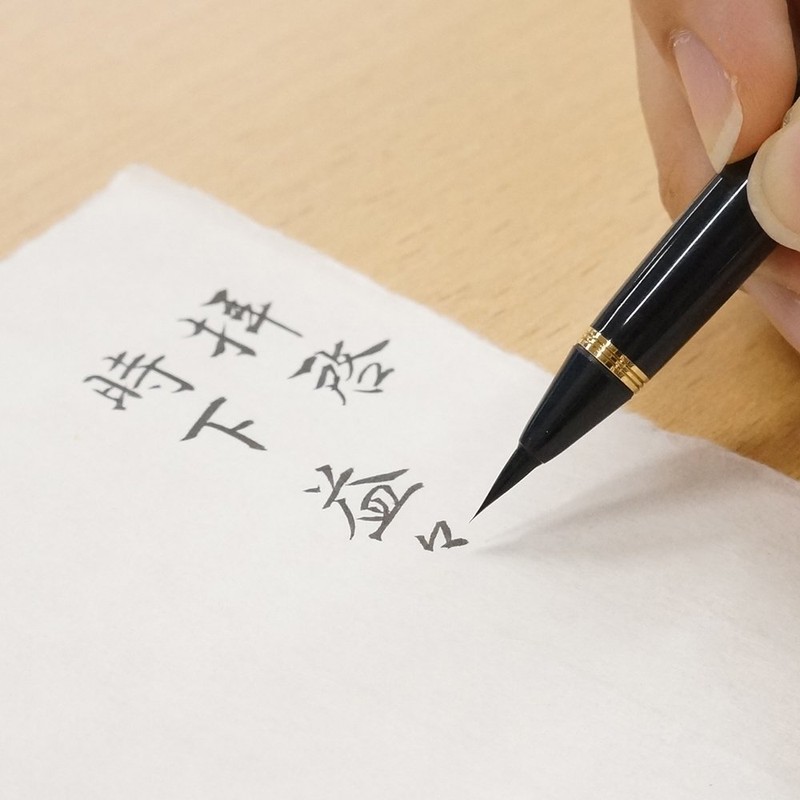 拝啓
時下益々